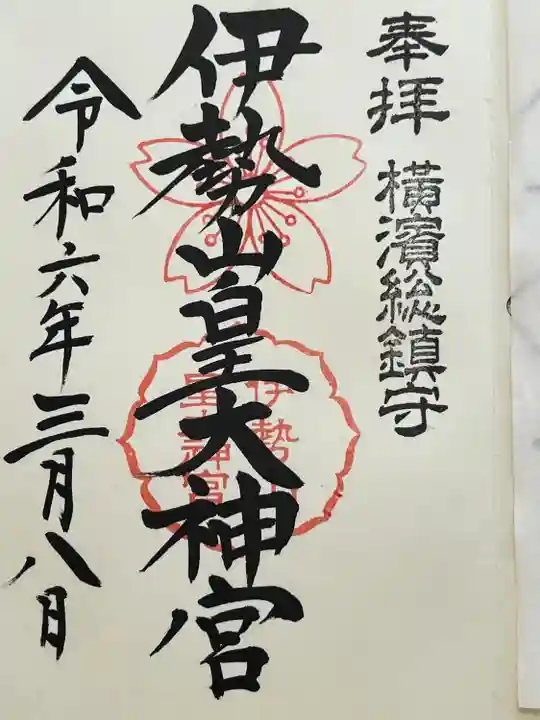 奉拝 横濱総鎮守
伊勢山皇大神宮
伊勢山
皇大神宮
令和六年三月八日